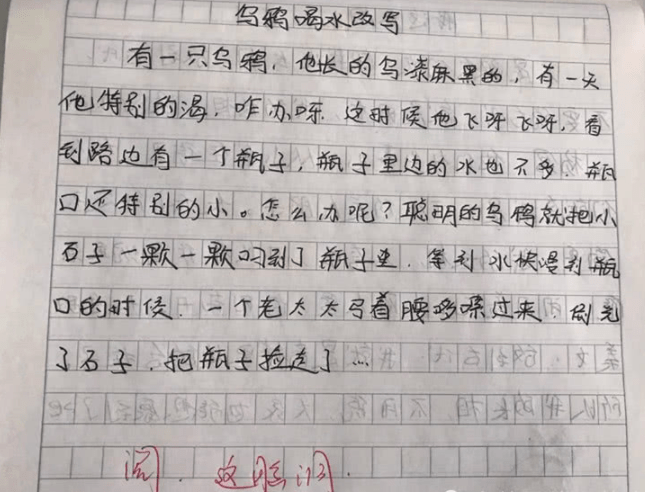 乌鸦喝水改写
有一只乌鸦，他长的乌漆麻黑的，有一天
他特别的渴，咋办呀。这时候他飞呀飞呀，看
到路边有一个瓶子，瓶子里边的水也不多，瓶
口还特别的小。怎么办呢？聪明的乌鸦就把小
石子一颗一颗叼到了瓶子里，等到水快漫到瓶
口的时候，一个老太太弓着腰哆嗦过来，倒光
了石子，把瓶子捡走了…
阅